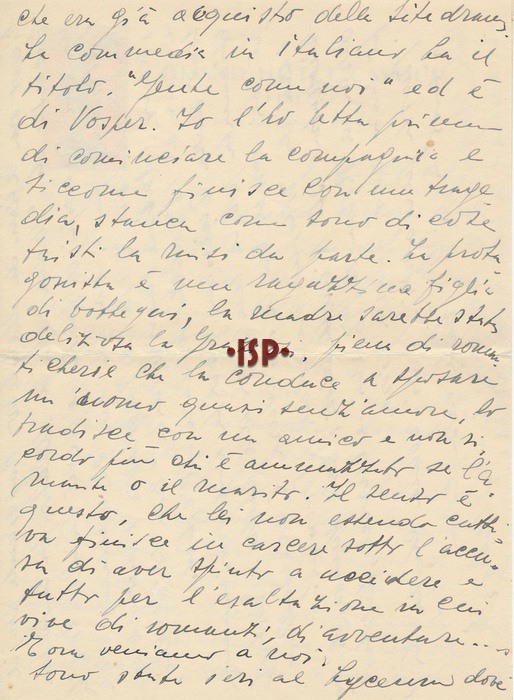 che era già acquisto della Sitedrama.
La commedia in italiano ha il
titolo. "Gente come noi" ed è
di Vosper. Io l'ho letta prima
di cominciare la compagnia e
siccome finisce con una trage
dia, stanca come sono di cose
tristi la misi da parte. La prota
gonista è una ragazzina figlia
di bottegai, la madre sarebbe stata
deliziosa la, piena di roman
ticherie che la conduce a sposare
un'uomo quasi senz'amore, lo
tradisce con un amico e non ri
cordo più chi è ammazzato se l'a
mante o il marito. Il senso è
questo, che lei non essendo catti-
va finisce in carcere sotto l'accu-
sa di aver spinto a uccidere e
tutto per l'esaltazione in cui
vive di romanzi, di avventure...
E ora veniamo a noi,
sono stata ieri al Lyceum dove
•ISP•